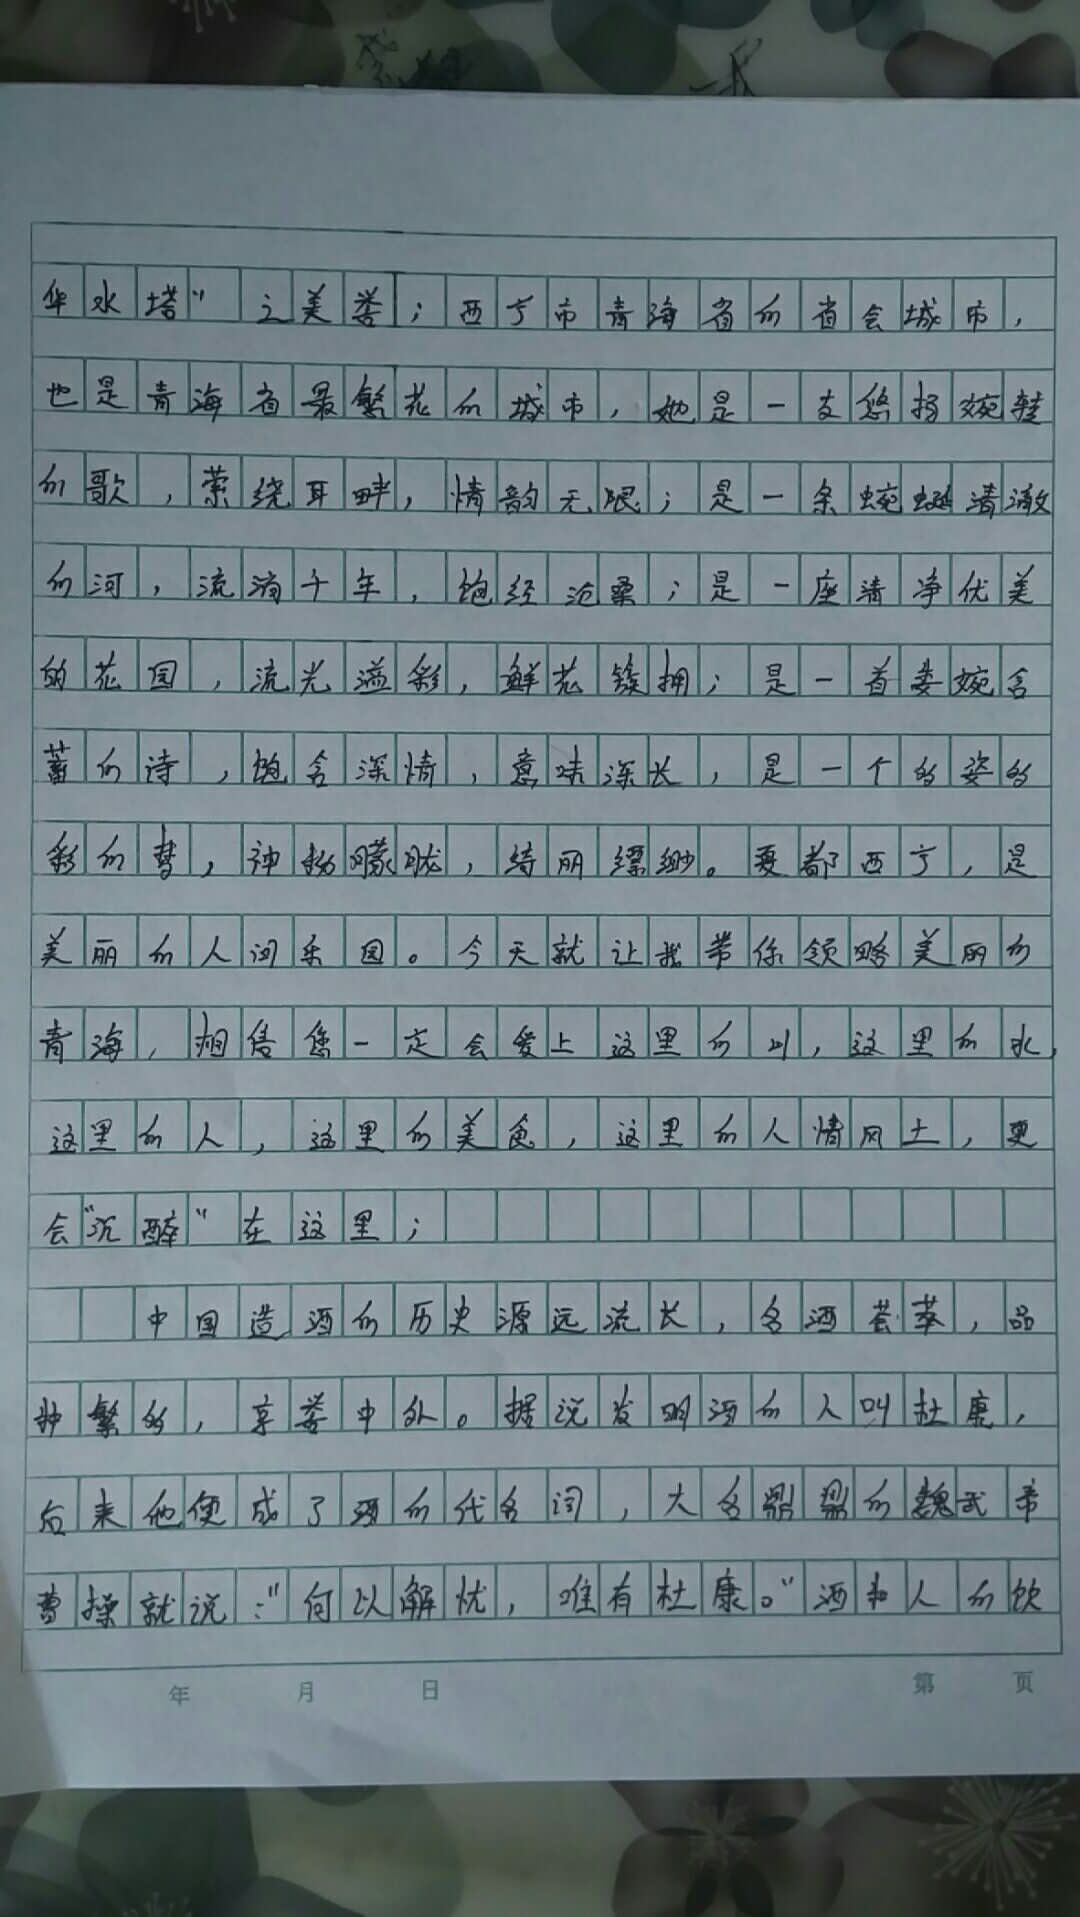 华水塔”之美誉；西宁市青海省的省会城市，
也是青海省最繁花的城市，她是一支悠扬婉转
的歌，萦绕耳畔，情韵无限；是一条蜿蜒清澈
的河，流淌千年，饱经沧桑；是一座清净优美
的花园，流光溢彩，鲜花簇拥；是一首委婉含
蓄的诗，饱含深情，意味深长，是一个多姿多
彩的梦，神秘朦胧，绮丽缥缈。夏都西宁，是
美丽的人间乐园。今天就让我带你领略美丽的
青海，相信您一定会爱上这里的山，这里的水，
这里的人，这里的美食，这里的人情风土，更
会“沉醉”在这里；
中国造酒的历史源远流长，名酒荟萃，品
种繁多，享誉中外。据说发明酒的人叫杜康，
后来他便成了酒的代名词，大名鼎鼎的魏武帝
曹操就说：“何以解忧，唯有杜康。”酒和人的饮
年 月 日 第 页